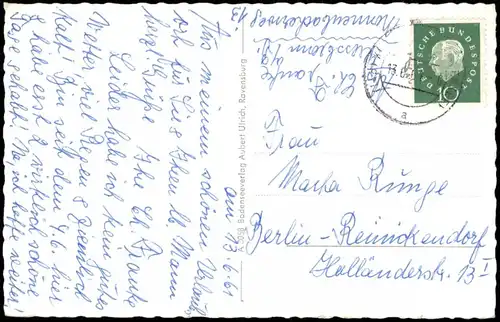 am 13.6.61
Aus meinem schönen Urlaub
Ihnen lb Mann
herzl. Grüße Ihre Ch. Franke
Leider habe ich kein gutes
Wetter viel Regen & ziemlich
kalt! Bin seit dem 4.6. hier
& habe erst 2 wirklich schöne
Tage gehabt! Na, ich hoffe weiter!
A 538 Bodenseeverlag Aubert Ulrich, Ravensburg
Ch. Franke
Nonnenbacherweg
13.
DEUTSCHE BUNDESPOST
10
a
Frau
Martha Runge
Berlin-Reinickendorf
Holländerstr. 13 I